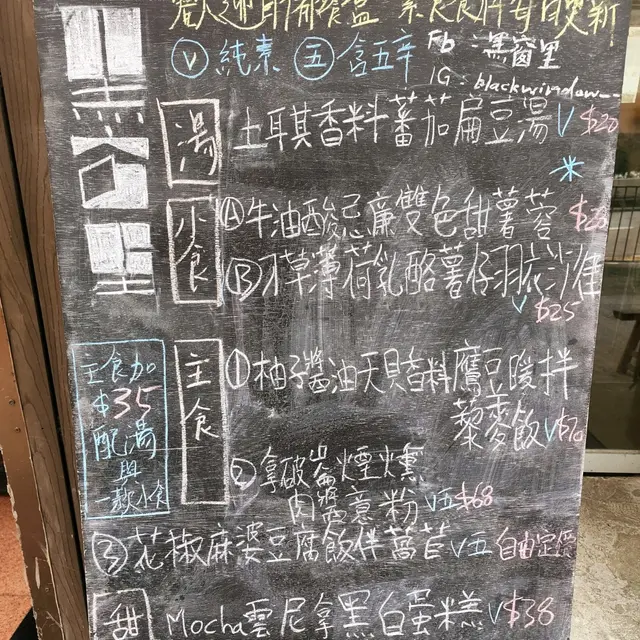 歡迎自備餐盒 素食食材每日更新
Ⓥ 純素 ㊄ 含五辛 Fb : 黑窗里
IG : blackwindow__
黑窗里
湯
土耳其香料蕃茄扁豆湯 V $20
小食
Ⓐ 牛油酸忌廉雙色甜薯蓉 $28
Ⓑ 香草薄荷乳酪薯仔羽衣沙律 V $25
主食加
$35
配湯
與
一款小食
主食
① 柚子醬油天貝香料鷹豆暖拌
藜麥飯 V $70
② 拿破崙煙燻
肉醬意粉 V五 $68
③ 花椒麻婆豆腐飯伴萵苣 V五 自由定價
甜
Mocha雲尼拿黑白蛋糕 V $38